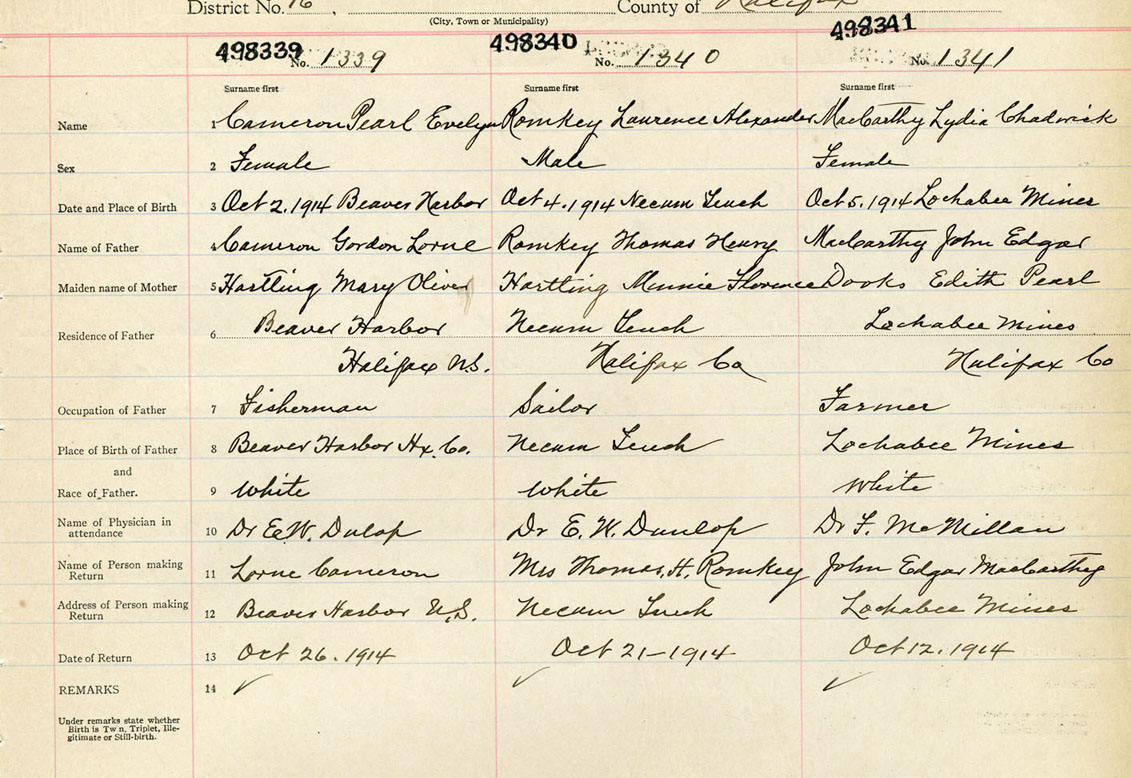 District No. 16, County of Halifax
(City, Town or Municipality)
498339 498340 498341
No. 1339 No. 1340 No. 1341
Surname first Surname first Surname first
Name 1 Cameron Pearl Evelyn Romkey Laurence Alexander MacCarthy Lydia Chadwick
Sex 2 Female Male Female
Date and Place of Birth 3 Oct 2. 1914 Beaver Harbor Oct 4. 1914 Necum Teuch Oct 5. 1914 Lochabee Mines
Name of Father 4 Cameron Gordon Lorne Romkey Thomas Henry MacCarthy John Edgar
Maiden name of Mother 5 Hartling Mary Oliver Hartling Minnie Florence Dooks Edith Pearl
Residence of Father 6 Beaver Harbor Necum Teuch Lochabee Mines
Halifax N.S. Halifax Co Halifax Co
Occupation of Father 7 Fisherman Sailor Farmer
Place of Birth of Father 8 Beaver Harbor Hx. Co. Necum Teuch Lochabee Mines
and
Race of Father. 9 White White White
Name of Physician in
attendance 10 Dr E.W. Dulop Dr E. W. Dunlop Dr F. McMillan
Name of Person making
Return 11 Lorne Cameron Mrs Thomas, H, Romkey John Edgar MacCarthy
Address of Person making
Return 12 Beaver Harbor N.S. Necum Teuch Lochabee Mines
Date of Return 13 Oct 26. 1914 Oct 21-1914 Oct 12. 1914
REMARKS 14 ✓ ✓ ✓
Under remarks state whether
Birth is Tw n, Triplet, Ille-
gitimate or Still-birth.